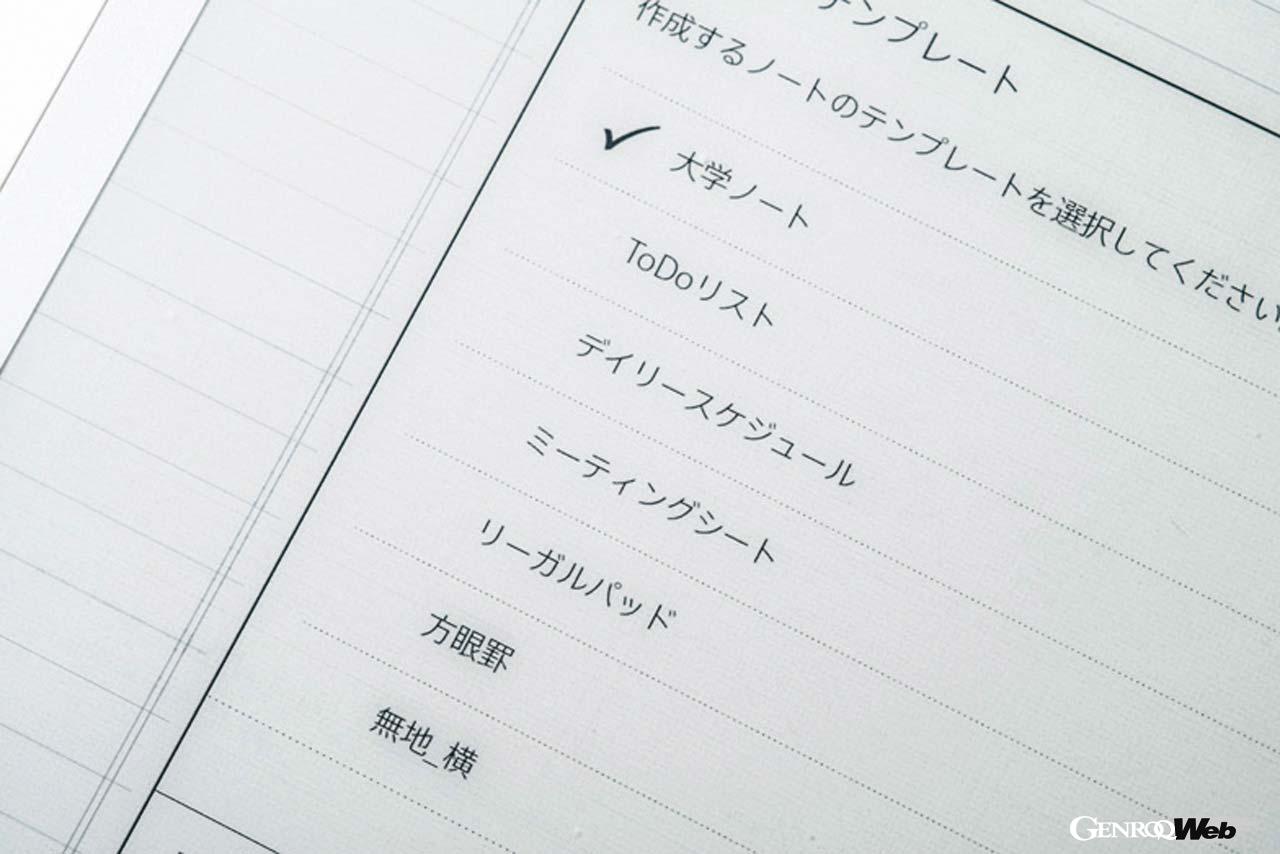 テンプレート
作成するノートのテンプレートを選択してください
大学ノート
ToDoリスト
デイリースケジュール
ミーティングシート
リーガルパッド
方眼罫
無地_横
GENROQ Web